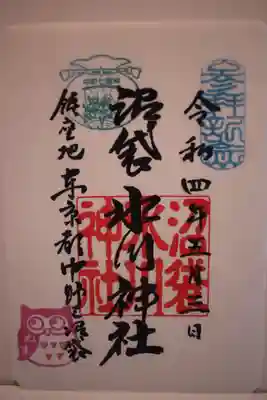 令和四年五月三日
沼袋氷川神社
鎮座地東京都中野区沼袋
沼袋氷川神社